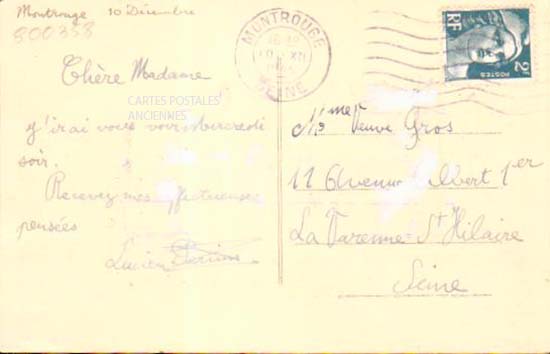 Montrouge 10 Décembre
800358
Chère Madame
CARTES POSTALES
ANCIENNES
j'irai vous voir Mercredi
soir.
Recevez mes affectueuses
pensées
Lucien
MONTROUGE
SEINE
RF
2F
POSTES
Mme Veuve Gros
11 Avenue Albert 1er
La Varenne St Hilaire
Seine